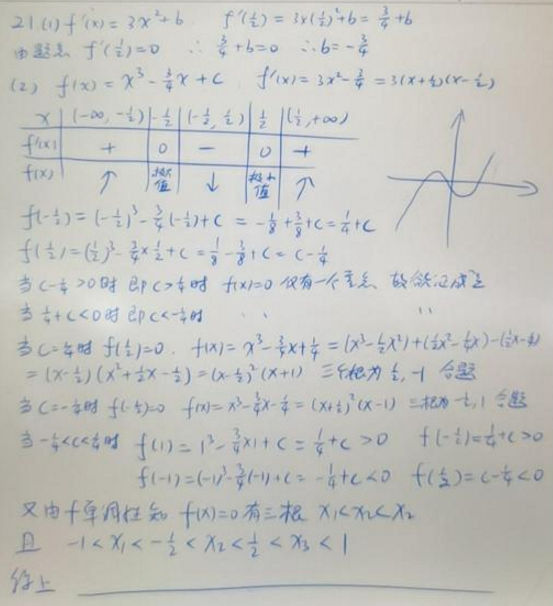 21.(1) f'(x) = 3x²+b. f'(½) = 3×(½)²+b = ¾+b
由题意 f'(½)=0 ∴ ¾+b=0 ∴ b=-¾
(2) f(x) = x³-¾x+c f'(x) = 3x²-¾ = 3(x+½)(x-½)
x (-∞, -½) -½ (-½, ½) ½ (½, +∞)
f'(x) + 0 - 0 +
f(x) ↑ 极大值 ↓ 极小值 ↑
f(-½) = (-½)³-¾(-½)+c = -⅛+⅜+c = ¼+c
f(½) = (½)³-¾×½+c = ⅛-⅜+c = c-¼
当 c-¼>0时 即 c>¼时 f(x)=0 仅有一个零点 故欲证成立
当 ¼+c<0时 即 c<-¼时 '' ''
当 c=¼时 f(½)=0. f(x) = x³-¾x+¼ = (x³-½x²)+(½x²-¼x)-(½x-¼)
= (x-½)(x²+½x-½) = (x-½)²(x+1) 三个根为 ½, -1 合题
当 c=-¼时 f(-½)=0 f(x) = x³-¾x-¼ = (x+½)²(x-1) 三根为 -½, 1 合题
当 -¼<c<¼时 f(1) = 1³-¾×1+c = ¼+c >0 f(-½)=¼+c>0
f(-1) = (-1)³-¾(-1)+c = -¼+c <0 f(½)=c-¼<0
又由f单调性知 f(x)=0 有三根 x₁<x₂<x₂
且 -1 < x₁ < -½ < x₂ < ½ < x₃ < 1
综上